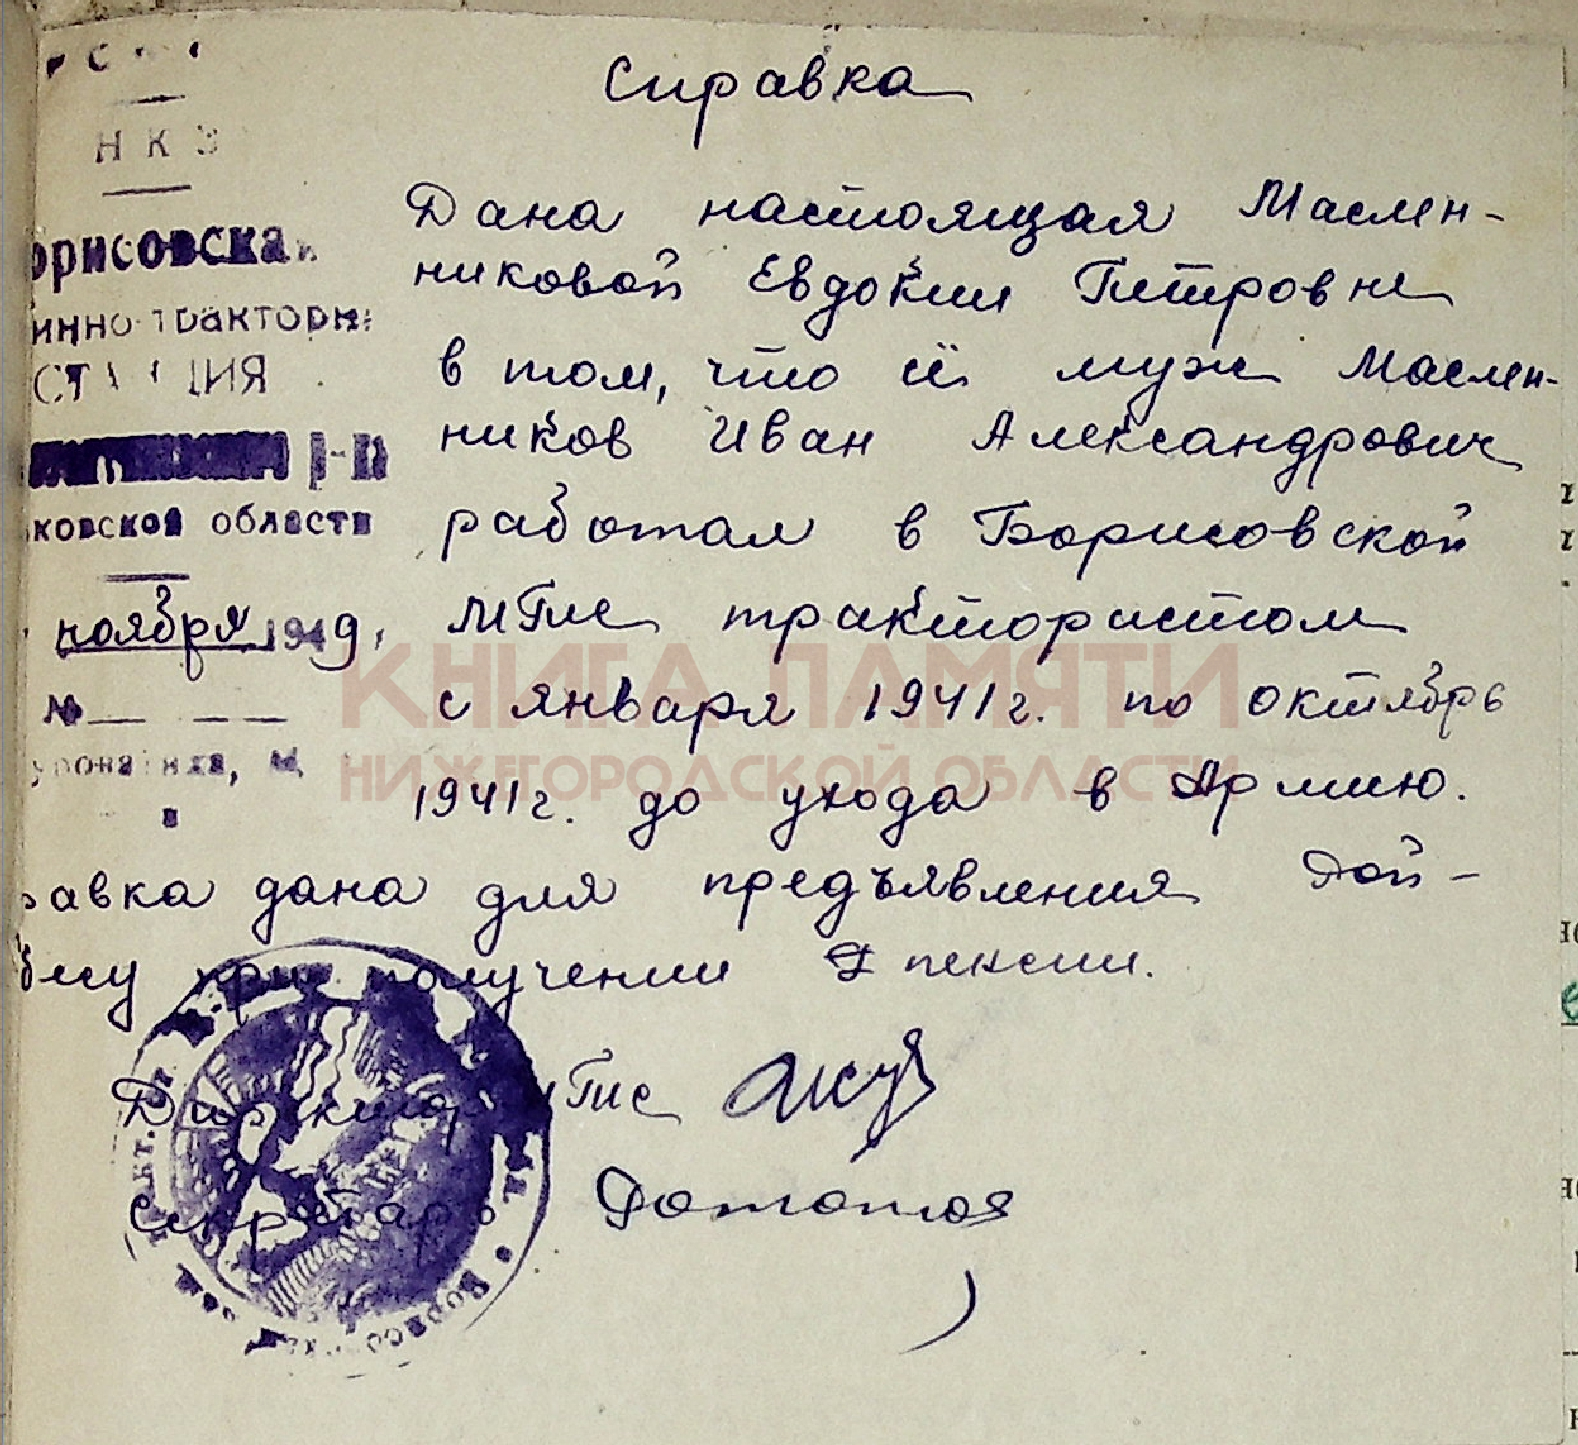 Справка
НКЗ
орисовская
инно тракторн
СТАНЦИЯ
р-н
ковской области
ноября 1949
№
Дана настоящая Маслен-
никовой Евдокии Петровне
в том, что её муж Маслен-
ников Иван Александрович
работал в Борисовской
МТМС трактористом
с января 1941 г. по октябрь
1941 г. до ухода в Армию.
равка дана для предъявления Рай-
бесу при получении пенсии.
Директор МТС
Секретарь
КНИГА ПАМЯТИ
НИЖЕГОРОДСКОЙ ОБЛАСТИ